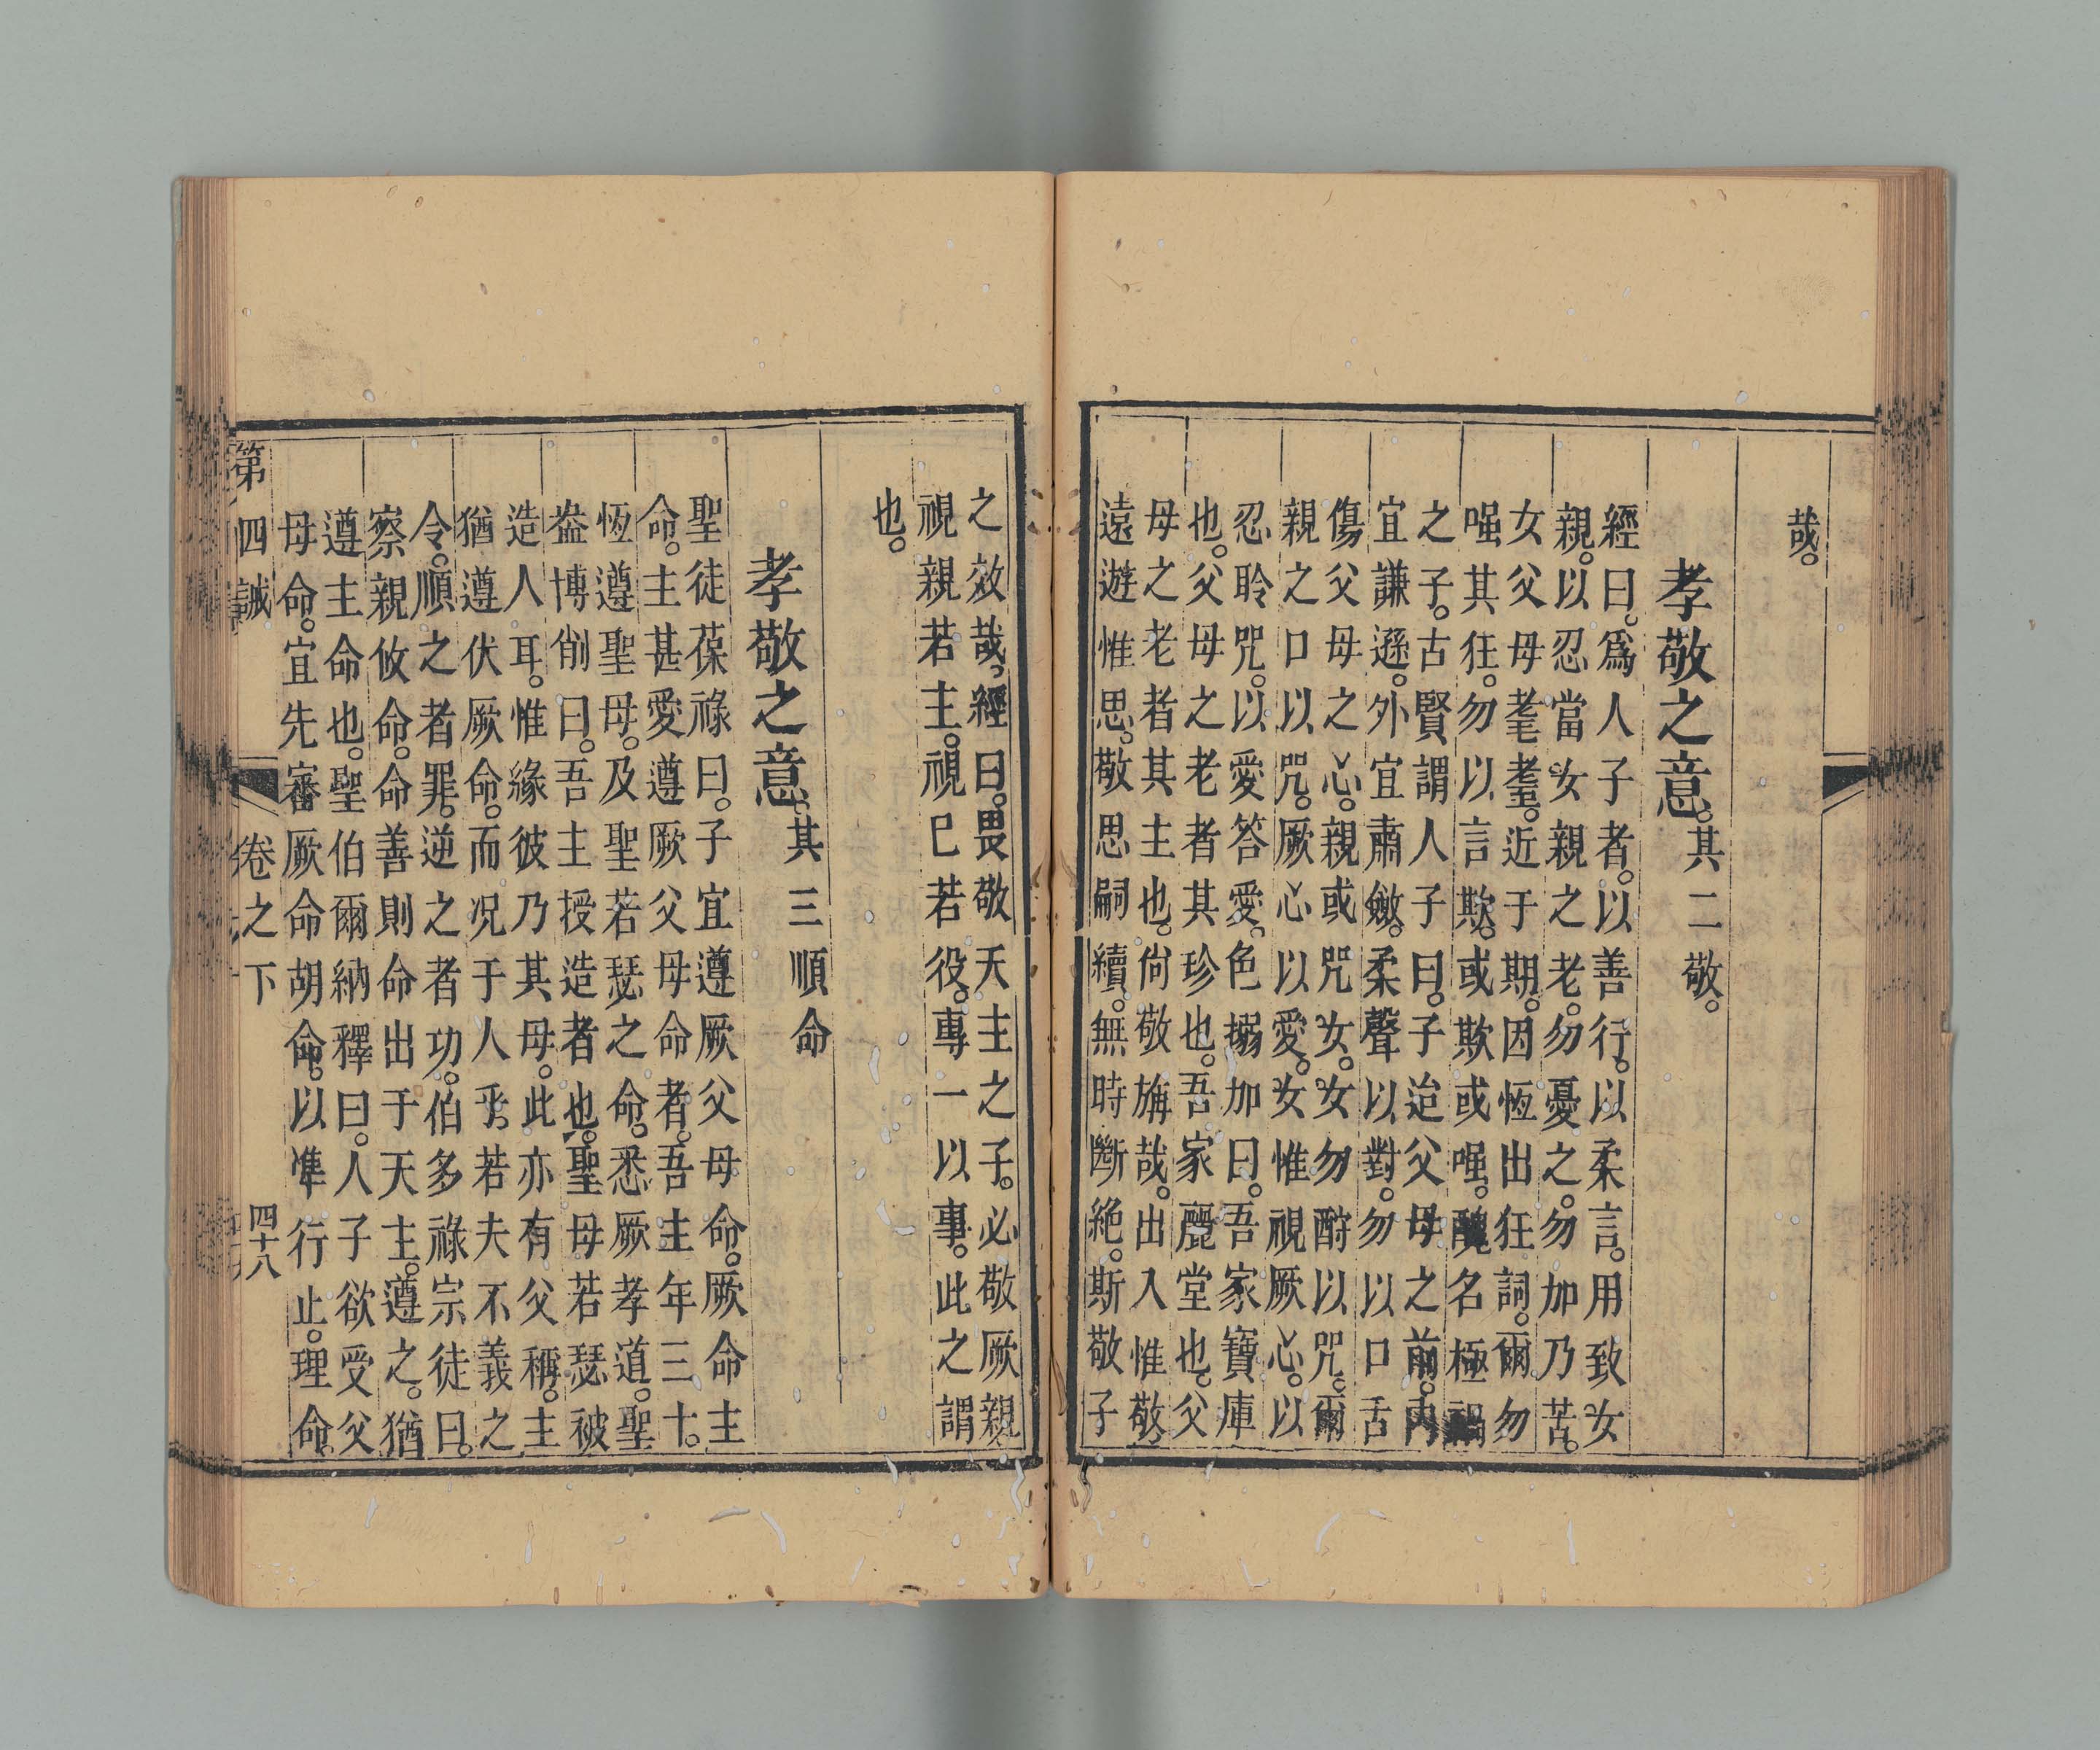 哉。
孝敬之意。其二敬。
經曰。爲人子者。以善行。以柔言。用致女
親。以忍當女親之老。勿憂之。勿加乃苦。
女父母耄耋。近于期。因恆出狂詞。爾勿
嗤其狂。勿以言欺。或欺或嗤。醜名極禍
之子。古賢謂人子曰。子迨父母之前。内
宜謙遜。外宜肅斂。柔聲以對。勿以口舌
傷父母之心。親或咒女。女勿酧以咒。爾
親之口以咒。厥心以愛。女惟視厥心。以
忍聆咒。以愛答愛。色搦加曰。吾家寶庫
也。父母之老者其珍也。吾家麗堂也。父
母之老者其主也。尙敬旃哉。出入惟敬。
遠遊惟思。敬思嗣續。無時斷絶。斯敬子
之效哉。經曰。畏敬天主之子。必敬厥親
視親若主。視巳若役。專一以事。此之謂
也。
孝敬之意。其三順命
聖徒葆祿曰。子宜遵厥父母命。厥命主
命。主甚愛遵厥父母命者。吾主年三十。
恆遵聖母。及聖若瑟之命。悉厥孝道。聖
盎博削曰。吾主授造者也。聖母若瑟被
造人耳。惟緣彼乃其母。此亦有父稱。主
猶遵伏厥命。而况于人乎。若夫不義之
令。順之者罪。逆之者功。伯多祿宗徒曰。
察親攸命。命善則命出于天主。遵之。猶
遵主命也。聖伯爾納釋曰。人子欲受父
母命。宜先審厥命胡命。以凖行止。理命。
第四誡 卷之下 四十八